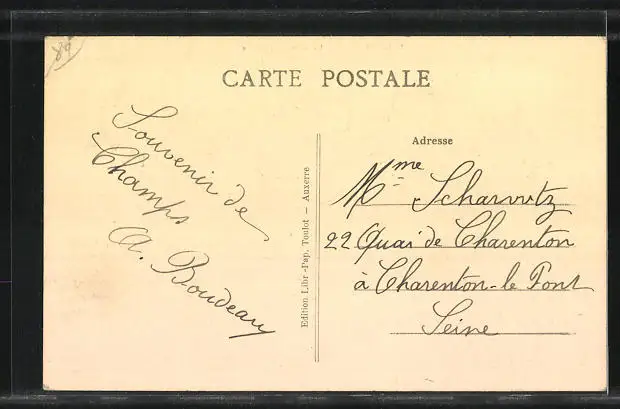 89
CARTE POSTALE
Souvenir de
Champs
A. Boudeau
Edition Libr.-Pap. Toulot — Auxerre
Adresse
Mme Scharwtz
22 Quai de Charenton
à Charenton-le Pont
Seine